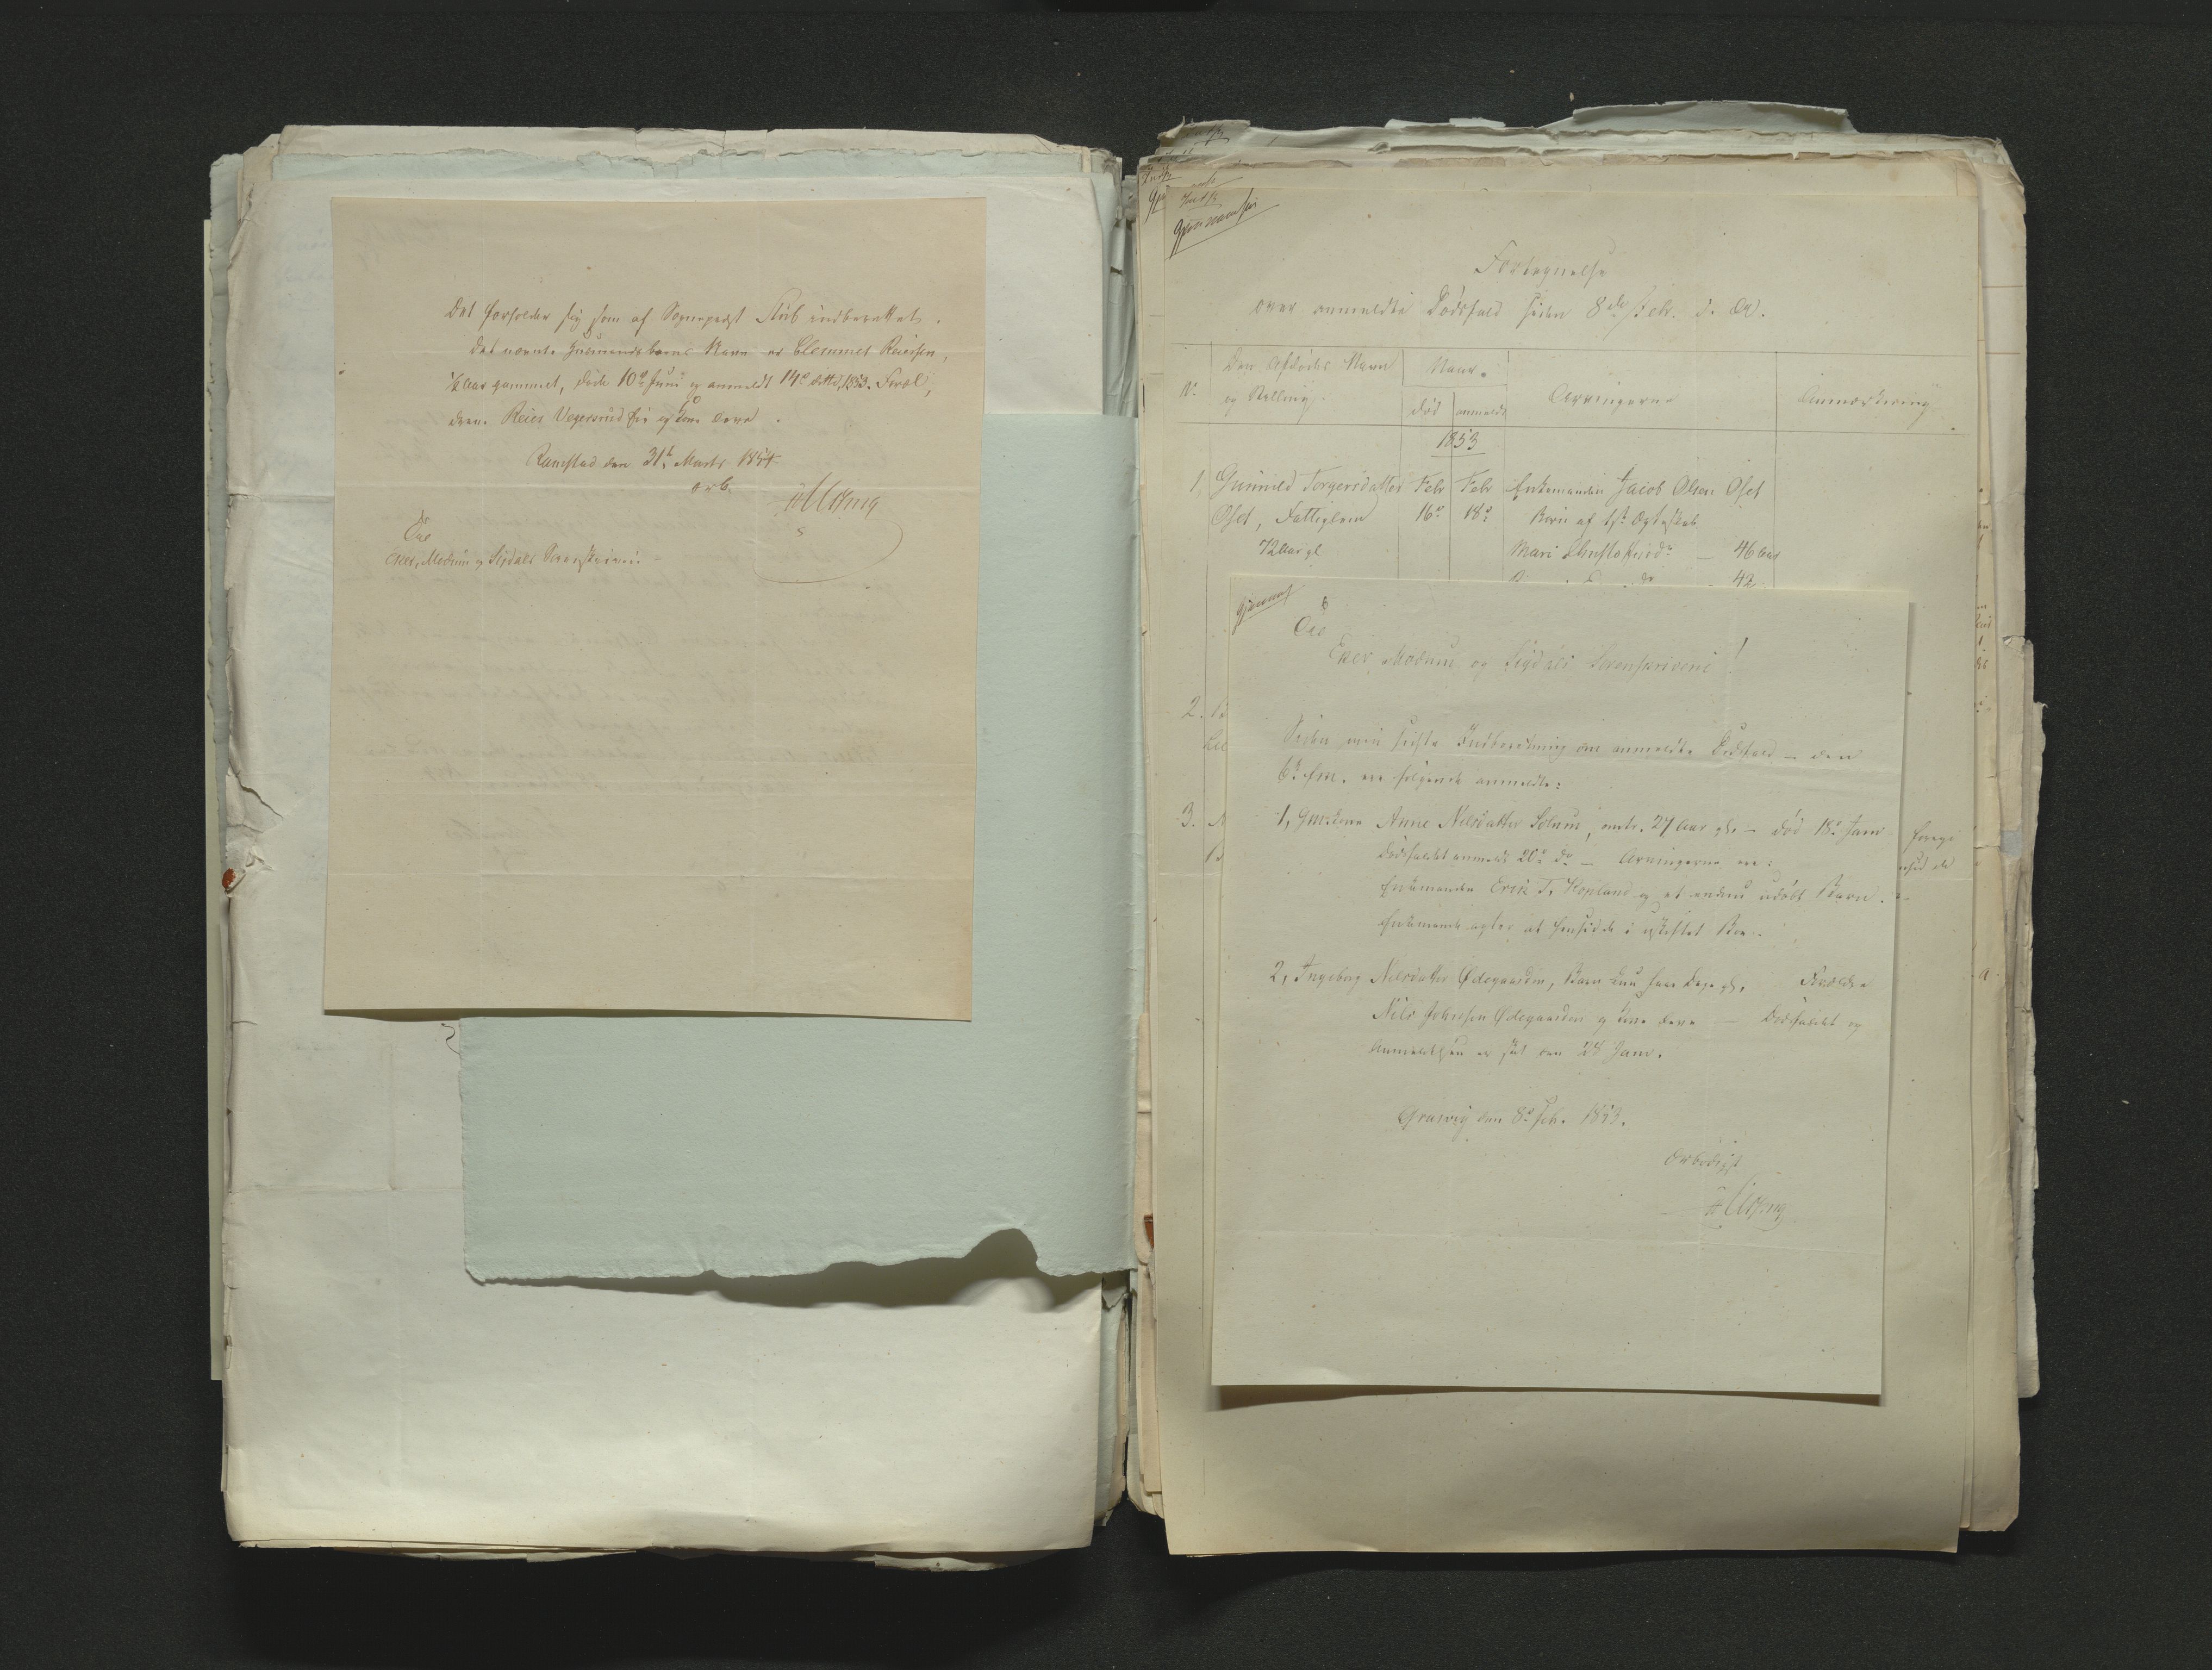 Det forholder sig som af Sognepræst Stub indberettet.
Det nævnte Huusmandsbarns Navn er Clemmet Reiersen,
½ Aar gammel, døde 10de Juni og anmeldt 14de ditto, 1853. Foræl,
drene Reier Vegersrud fri og Kone leve.
Ramstad den 31te Marts 1854
ærb.
Til
Eker, Modum og Sigdals Sorenskriveri.
Gjennemseet
Fortegnelse
over anmeldte Dødsfald siden 8de Febr. d. A.
No.
Den Afdødes Navn
og Stilling.
Naar
død
anmeldt
Arvingerne
Anmærkning
1853
1, Gunnild Torgersdatter Febr Febr Enkemanden Jacob Olsen Øset
Øset, Fattiglem 16de 18de Børn af 1ste Ægteskab
72 Aar gl. Mari Christofersdr — 46 Aar
42
2.
3.
Gjennems
Til
Eker, Modum og Sigdals Sorenskriveri!
Siden min sidste Indberetning om anmeldte Dødsfald — den
6te f.m. ere følgende anmeldte:
1, Gmkone Anne Nilsdatter Solum, omtr. 27 Aar gl. — død 18de Janr
Dødsfaldet anmeldt 20de do — Arvingerne ere:
Enkemanden Erik T. Kopland og et endnu udøbt Barn.
Enkemanden agter at hensidde i uskiftet Boe.
2, Ingeborg Nilsdatter Ødegaarden, Barn kun faae Dage gl. Forældre
Nils Johnsen Ødegaarden og Kone leve — Dødsfaldet og
Anmeldelsen er skeet den 24 Janr.
Gravvig den 8de Feb. 1853.
Ærbødigst